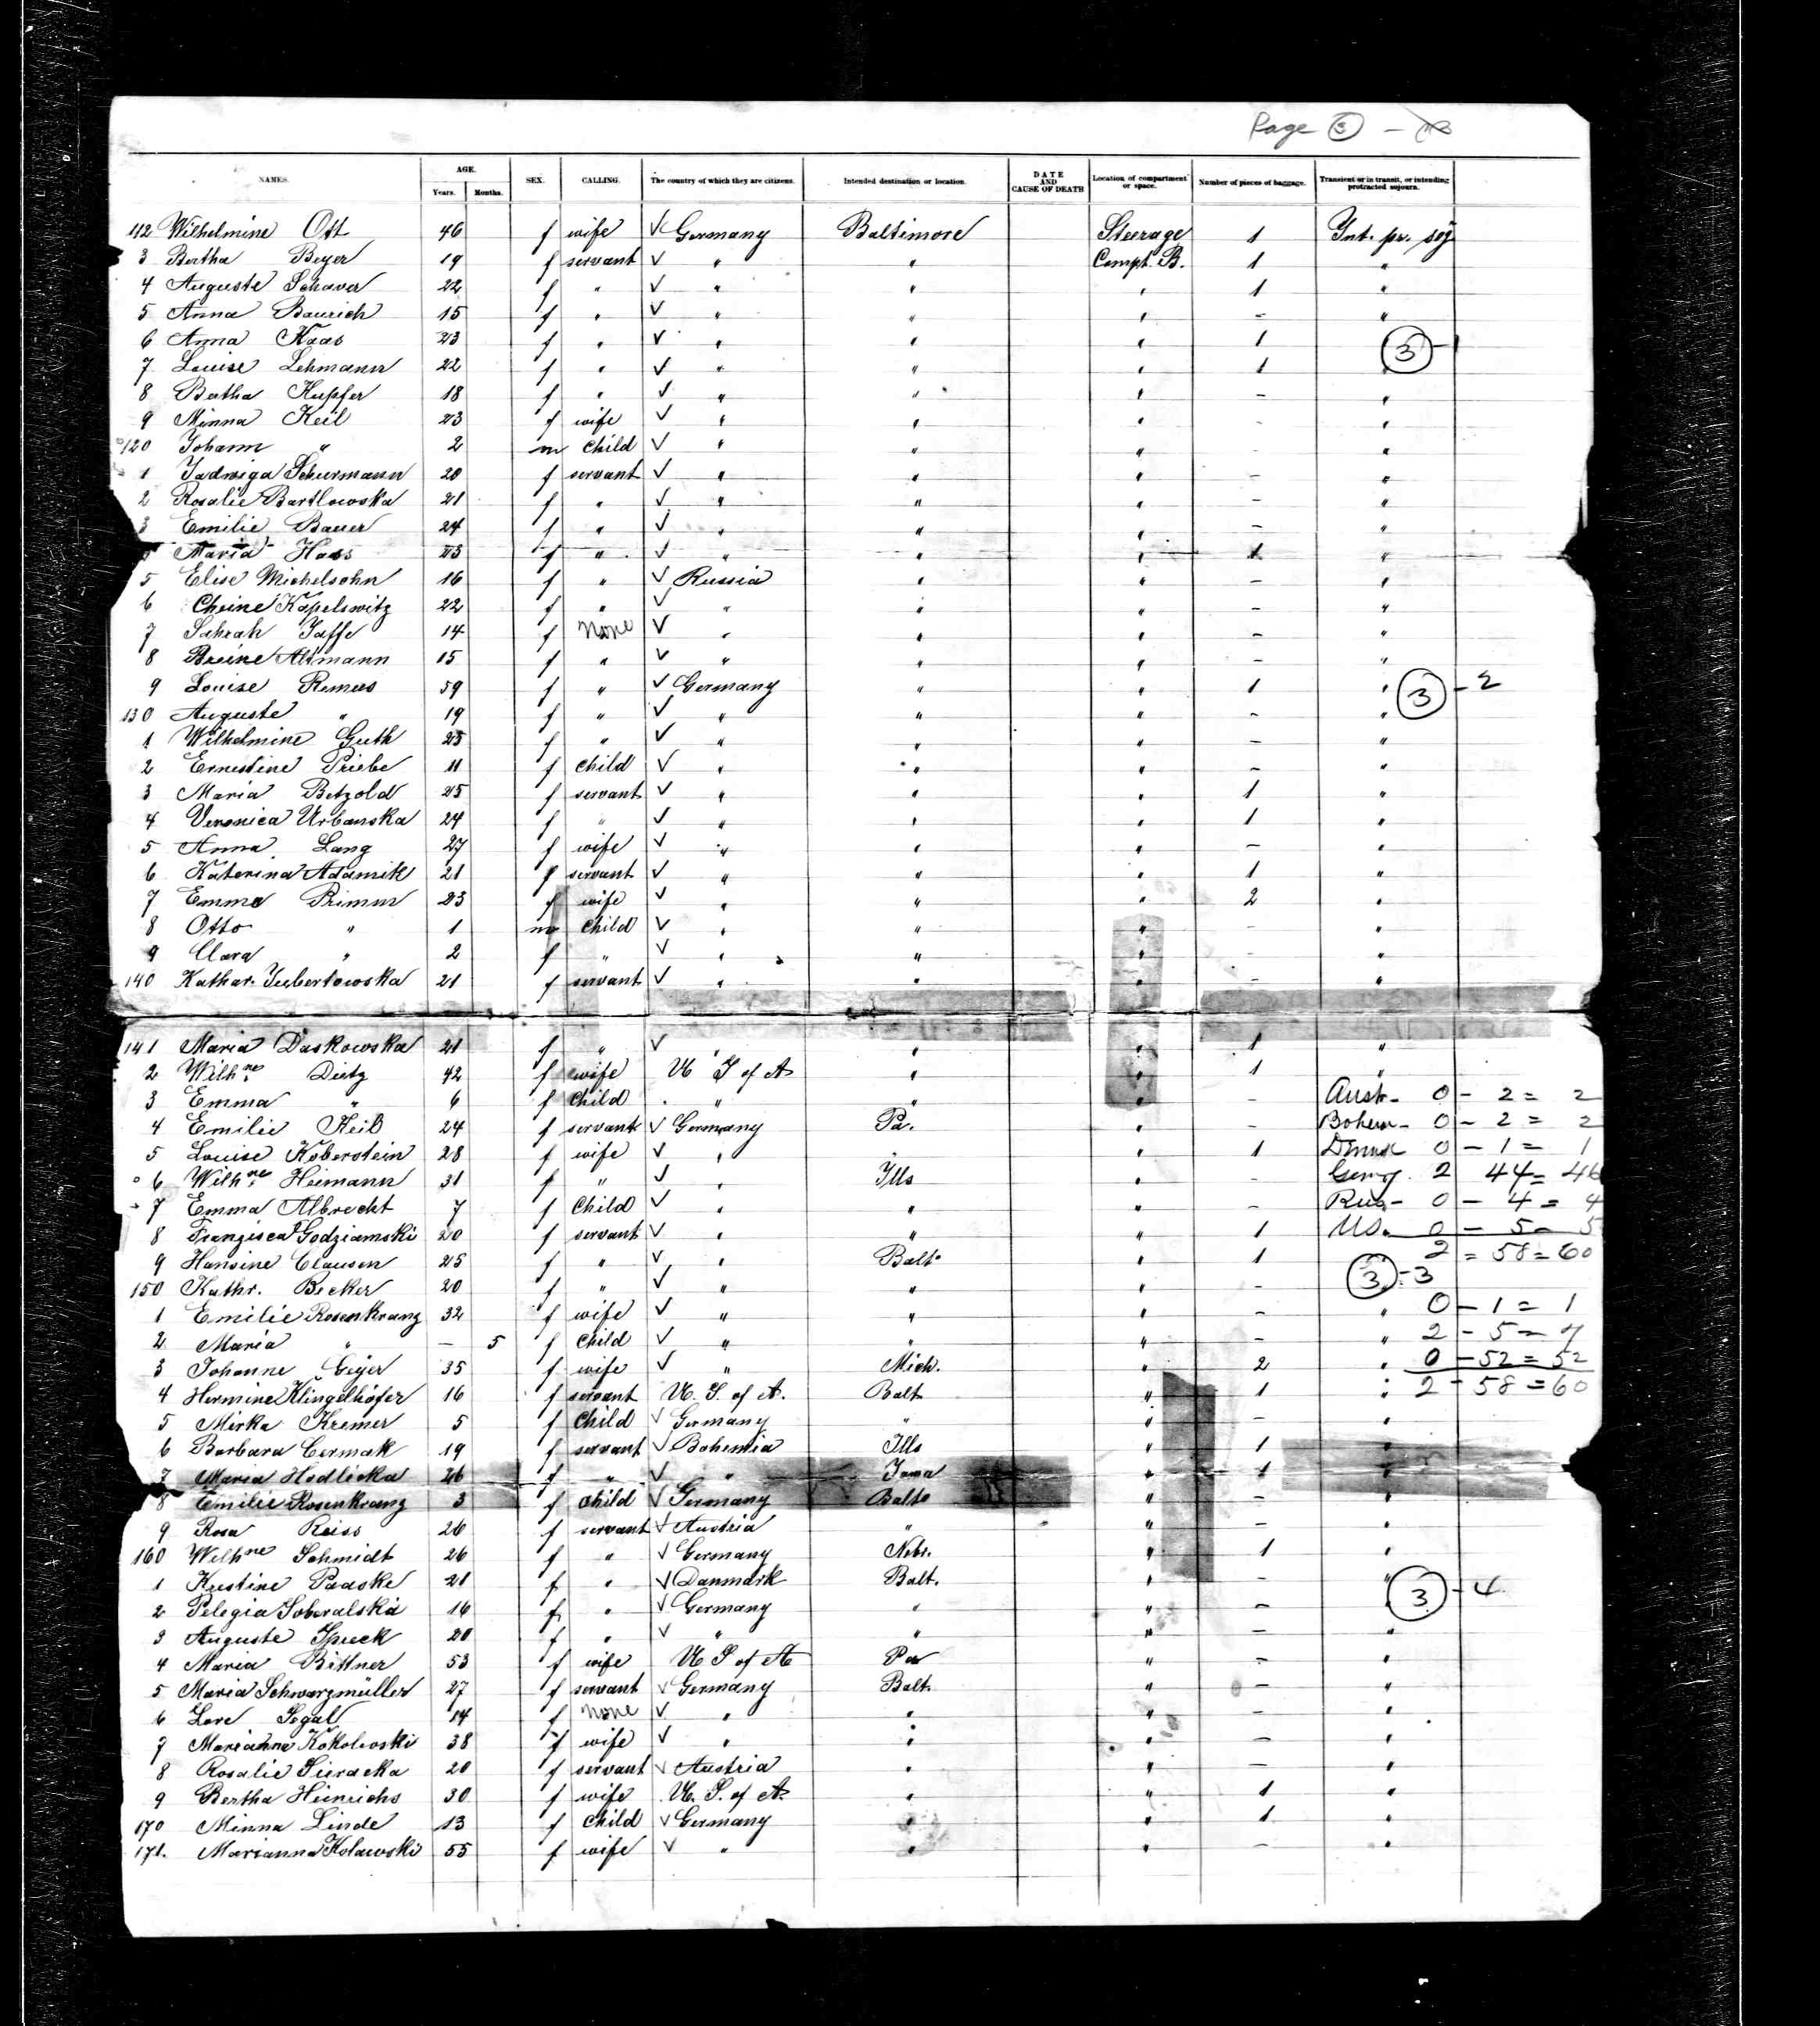 Page 3
NAMES. AGE. Years. Months. SEX. CALLING. The country of which they are citizens. Intended destination or location. DATE AND CAUSE OF DEATH Location of compartment or space. Number of pieces of baggage. Transient or in transit, or intending protracted sojourn.
112 Wilhelmine Ott 46 f wife ✓ Germany Baltimore Steerage 1 Int. pr. soj
3 Bertha Beyer 19 f servant ✓ " " Compt. B. 1 "
4 Auguste Schaver 22 f " ✓ " " " 1 "
5 Anna Baurich 15 f " ✓ " " " - "
6 Anna Haas 23 f " ✓ " " " 1 3 - 1
7 Louise Lehmann 22 f " ✓ " " " 1 "
8 Bertha Kupfer 18 f " ✓ " " " - "
9 Minna Keil 23 f wife ✓ " " " - "
120 Johann " 2 m Child ✓ " " " - "
1 Jadwiga Schurmann 20 f servant ✓ " " " - "
2 Rosalie Bartlowska 21 f " ✓ " " " - "
3 Emilie Bauer 24 f " ✓ " " " - "
Maria Hass 23 f " ✓ " " " 1 "
5 Elise Michelsohn 16 f " ✓ Russia " " - "
6 Cheine Kapelswitz 22 f " ✓ " " " - "
7 Sahrah Jaffe 14 f None ✓ " " " - "
8 Breine Altmann 15 f " ✓ " " " - "
9 Louise Remus 59 f " ✓ Germany " " 1 " 3 - 2
130 Auguste " 19 f " ✓ " " " - "
1 Wilhelmine Guth 23 f " ✓ " " " - "
2 Ernestine Priebe 11 f Child ✓ " " " - "
3 Maria Betzold 25 f servant ✓ " " " 1 "
4 Veronica Urbanska 24 f " ✓ " " " 1 "
5 Anna Lang 27 f wife ✓ " " " - "
6 Katerina Adamik 21 f servant ✓ " " " 1 "
7 Emma Primm 23 f wife ✓ " " " 2 "
8 Otto " 1 m Child ✓ " " " - "
9 Clara " 2 f " ✓ " " " - "
140 Kathar. Jubertowska 21 f servant ✓ " " " - "
141 Maria Daskowska 21 f " ✓ " " " 1 "
2 Wilhne Dietz 42 f wife U S of A " " 1 "
3 Emma " 6 f Child " " " - Aust- 0 - 2 = 2
4 Emilie Keil 24 f servant ✓ Germany Pa. " - Bohem- 0 - 2 = 2
5 Louise Koberstein 28 f wife ✓ " " " 1 Dmark 0 - 1 = 1
6 Wilhne Heimann 31 f " ✓ " Ills " - Germy. 2 44 = 46
7 Emma Albrecht 7 f Child ✓ " " " - Rus- 0 - 4 = 4
8 Franzisca Godziamski 20 f servant ✓ " " " 1 US. 0 = 5 - 5
9 Hansine Clausen 25 f " ✓ " Balto " 1 2 = 58 = 60
150 Kathr. Becker 20 f " ✓ " " " - 3 - 3
1 Emilie Rosenkranz 32 f wife ✓ " " " - " 0 - 1 = 1
2 Maria " - 5 f Child ✓ " " " - " 2 - 5 = 7
3 Johanne Geijer 35 f wife ✓ " Mich. " 2 " 0 - 52 = 52
4 Hermine Klingelhöfer 16 f servant U. S. of A. Balt " 1 " 2 - 58 = 60
5 Mirka Kremer 5 f Child ✓ Germany " " - "
6 Barbara Cermak 19 f servant ✓ Bohemia Ills " 1 "
7 Maria Hodlicka 26 f " ✓ " Iowa " 1 "
8 Emilie Rosenkranz 3 f Child ✓ Germany Balto " - "
9 Rosa Reiss 26 f servant ✓ Austria " " - "
160 Wilhne Schmidt 26 f " ✓ Germany Nebr. " 1 "
1 Kustine Paaske 21 f " ✓ Danmark Balt. " - "
2 Pelegia Soberalska 16 f " ✓ Germany " " - " 3 - 4
3 Auguste Speck 20 f " ✓ " " " - "
4 Maria Bittner 53 f wife U S of A Pa " - "
5 Maria Schwarzmüller 27 f servant ✓ Germany Balt. " - "
6 Lore Segal 14 f None ✓ " " " - "
7 Marianna Kokolewski 38 f wife ✓ " " " - "
8 Rosalie Sieracka 20 f servant ✓ Austria " " - "
9 Bertha Heinrichs 30 f wife U. S. of A. " " 1 "
170 Minna Linde 13 f Child ✓ Germany " " 1 "
171. Marianna Kolawski 55 f wife ✓ " " " - "